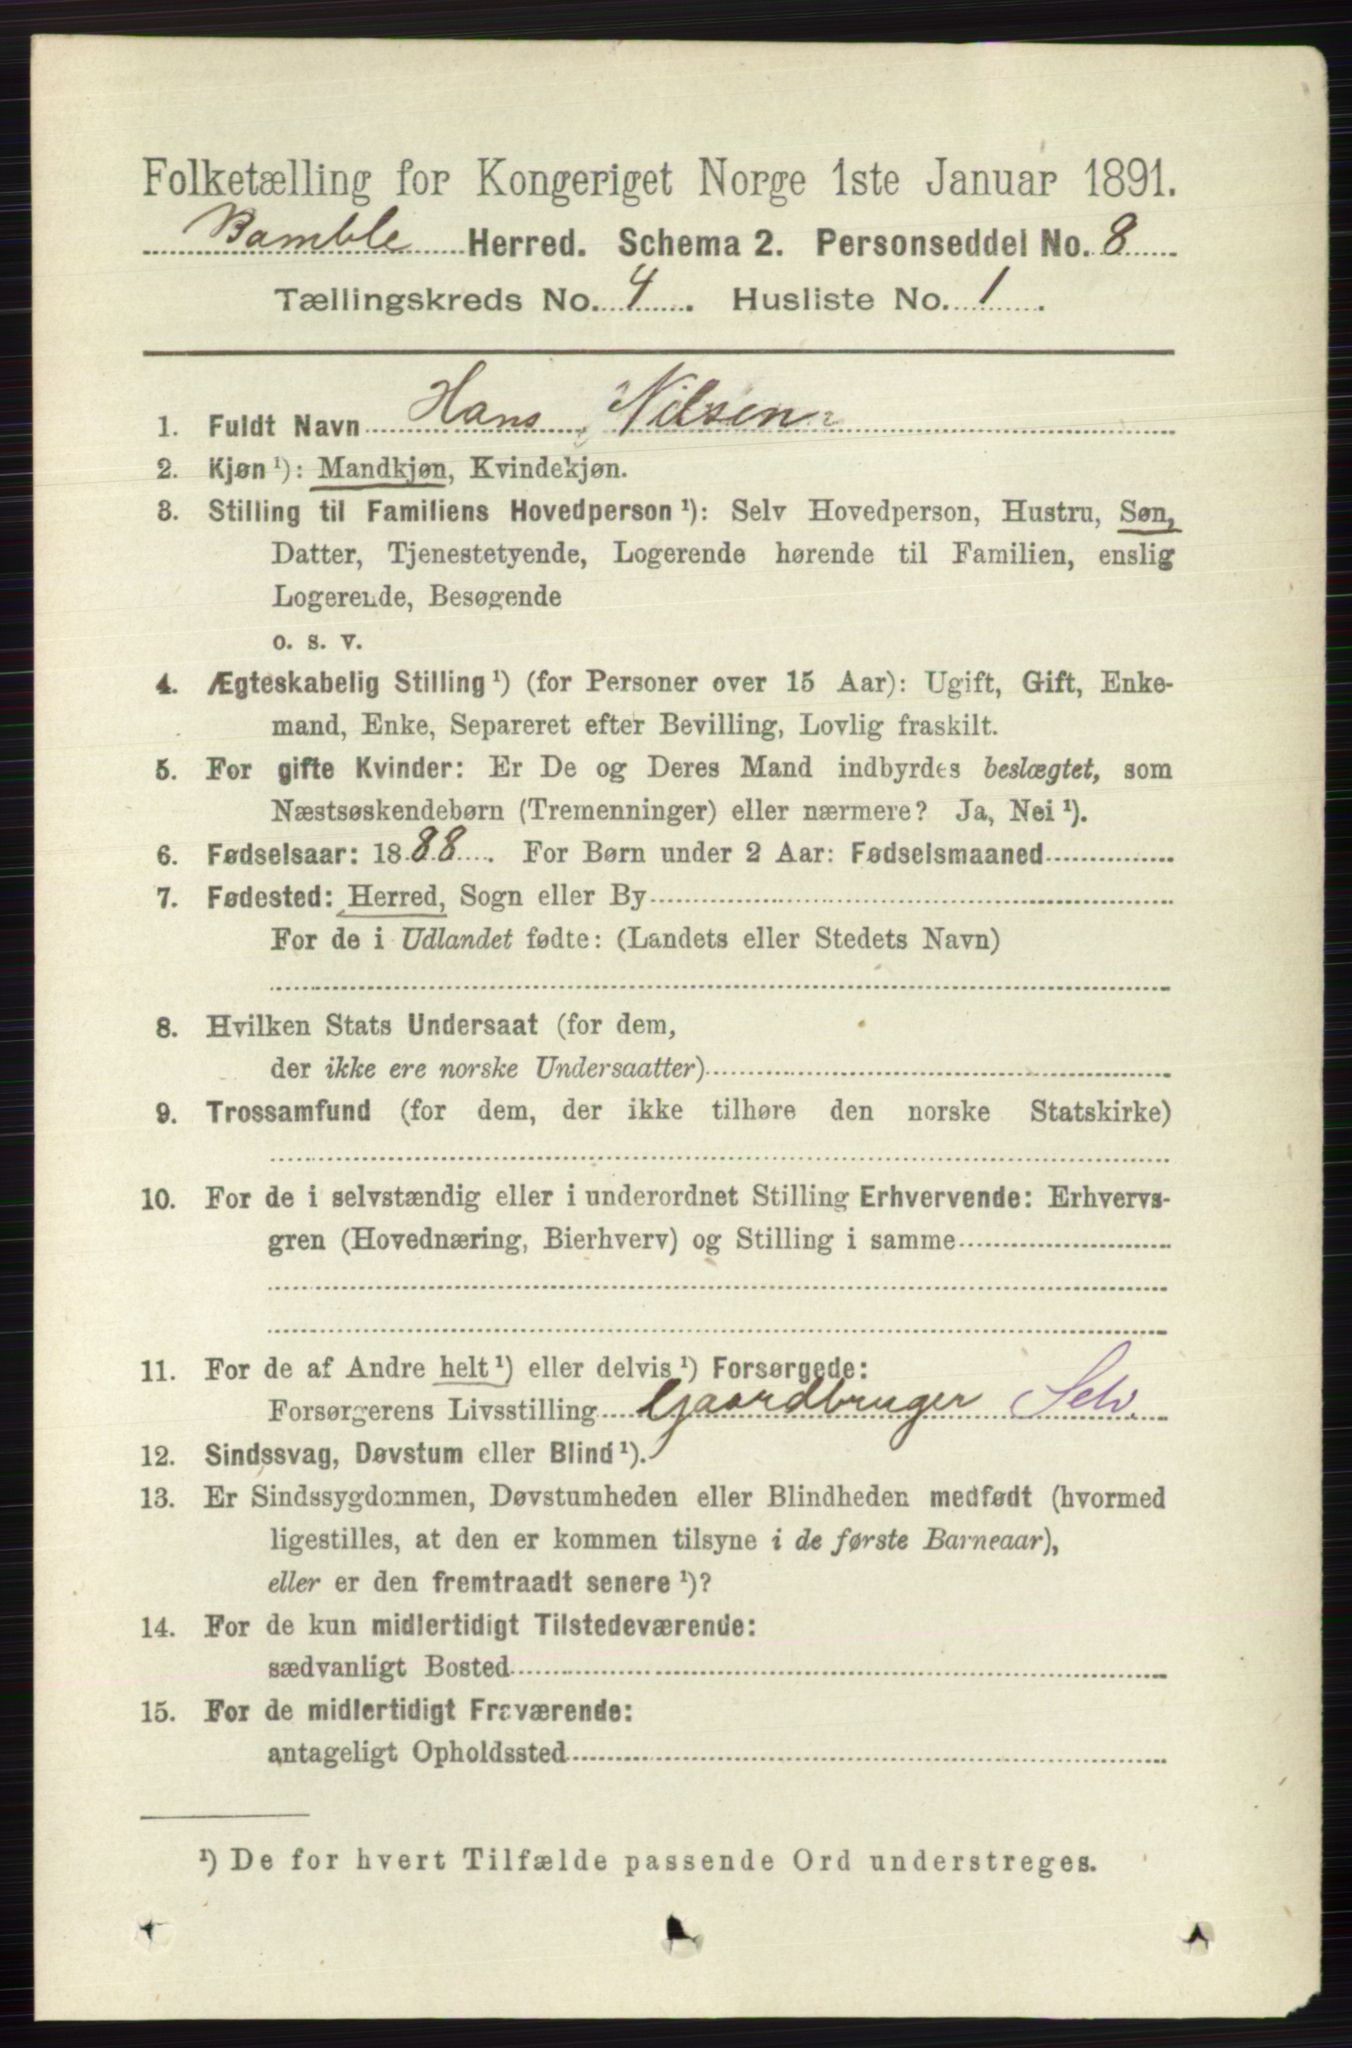 Folketælling for Kongeriget Norge 1ste Januar 1891.
Bamble Herred. Schema 2. Personseddel No. 8
Tællingskreds No. 4. Husliste No. 1.
1. Fuldt Navn Hans Nilsen
2. Kjøn ¹): Mandkjøn, Kvindekjøn.
3. Stilling til Familiens Hovedperson ¹): Selv Hovedperson, Hustru, Søn,
Datter, Tjenestetyende, Logerende hørende til Familien, enslig
Logerende, Besøgende
o. s. v.
4. Ægteskabelig Stilling ¹) (for Personer over 15 Aar): Ugift, Gift, Enke-
mand, Enke, Separeret efter Bevilling, Lovlig fraskilt.
5. For gifte Kvinder: Er De og Deres Mand indbyrdes beslægtet, som
Næstsøskendebørn (Tremenninger) eller nærmere? Ja, Nei ¹).
6. Fødselsaar: 1888. For Børn under 2 Aar: Fødselsmaaned
7. Fødested: Herred, Sogn eller By
For de i Udlandet fødte: (Landets eller Stedets Navn)
8. Hvilken Stats Undersaat (for dem,
der ikke ere norske Undersaatter)
9. Trossamfund (for dem, der ikke tilhøre den norske Statskirke)
10. For de i selvstændig eller i underordnet Stilling Erhvervende: Erhvervs-
gren (Hovednæring, Bierhverv) og Stilling i samme
11. For de af Andre helt ¹) eller delvis ¹) Forsørgede:
Forsørgerens Livsstilling Gaardbruger Selv.
12. Sindssvag, Døvstum eller Blind ¹).
13. Er Sindssygdommen, Døvstumheden eller Blindheden medfødt (hvormed
ligestilles, at den er kommen tilsyne i de første Barneaar),
eller er den fremtraadt senere ¹)?
14. For de kun midlertidigt Tilstedeværende:
sædvanligt Bosted
15. For de midlertidigt Fraværende:
antageligt Opholdssted
¹) De for hvert Tilfælde passende Ord understreges.